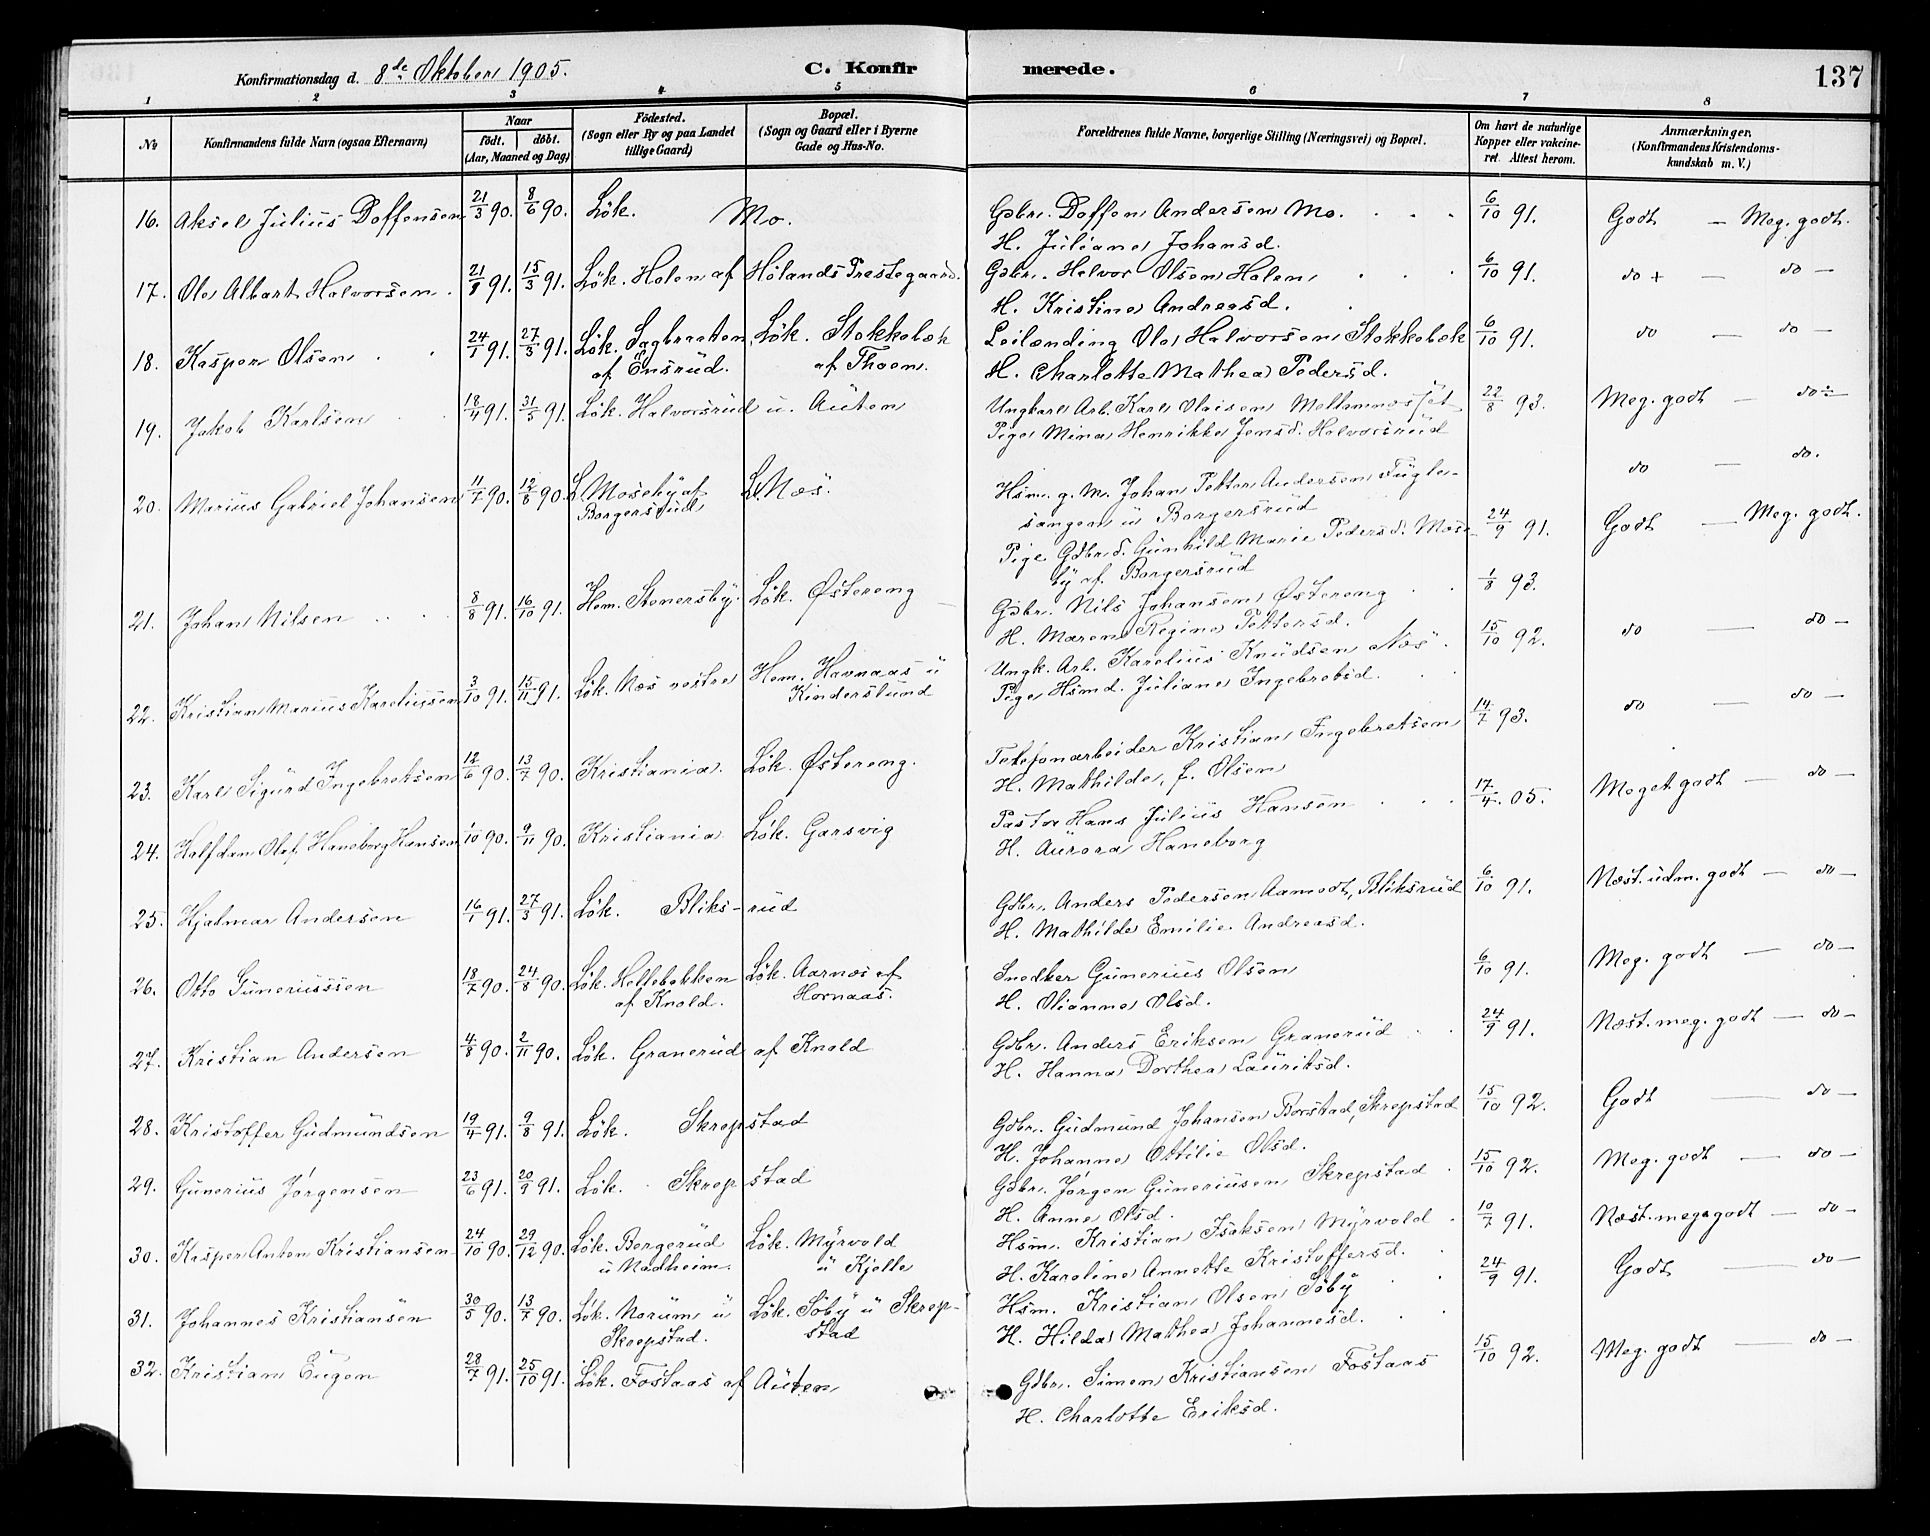 Konfirmationsdag d. 8de Oktober 1905.
C. Konfirmerede.
137
1 2 3 4 5 6 7 8
No
Konfirmandens fulde Navn (ogsaa Efternavn)
Naar
födt. döbt.
(Aar, Maaned og Dag)
Födested.
(Sogn eller By og paa Landet
tillige Gaard)
Bopæl.
(Sogn og Gaard eller i Byerne
Gade og Hus-No.
Forældrenes fulde Navne, borgerlige Stilling (Næringsvei) og Bopæl.
Om havt de naturlige
Kopper eller vakcine-
ret. Attest herom.
Anmærkninger.
(Konfirmandens Kristendoms-
kundskab m. V.)
16. Aksel Julius Doffensen 21/3 90. 8/6 90. Lök. Mo. Gdbr. Doffen Andersen Mo. 6/10 91. Godt — Meg. godt.
H. Juliane Johansd.
17. Ole Albart Halvorsen 21/8 91. 15/3 91. Lök. Holen af Hölands Prestegaard. Gdbr. Halvor Olsen Holen 6/10 91. do + — do —
H. Kristine Andreasd.
18. Kasper Olsen 24/1 91. 27/3 91. Lök. Sagbraaten Lök. Stokkebæk Leilænding Ole Halvorsen Stokkebæk 6/10 91. do — do —
af Ensrud. af Thoen. H. Charlotte Mathea Pedersd.
19. Jakob Karlsen 18/4 91. 31/5 91. Lök. Halvorsrud u. Auten Ungkarl Arb. Karl Olaisen 22/8 93. Meg. godt — do
Pige Mina Henrikke Jensd. Halvorsrud
20. Marius Gabriel Johansen 11/7 90. 12/8 90. L. Moseby af L. Næs. Hsm. g. M. Johan Petter Andersen Fugle- do — do.
Borgersrud sangen u Borgersrud
Pige Gdbrd. Gunhild Marie Pedersd. Mose- 24/9 91. Godt — Meg. godt.
by af Borgersrud
21. Johan Nilsen 8/8 91. 16/10 91. Hem. Stenersby. Lök. Østereng Gdbr. Nils Johansen Østereng 1/8 93.
H. Maren Regine Pettersd.
22. Kristian Marius Kareliussen 3/10 91. 15/11 91. Lök. Næs vestre Hem. Havnaas u Ungk. Arb. Karelius Knudsen Næs. 15/10 92. do — do —
Kinderslund Pige Hsmd. Juliane Ingebretsd.
23. Karl Sigurd Ingebretsen 12/6 90. 13/7 90. Kristiania. Lök. Østereng. Telefonarbeider Kristian Ingebretsen 14/7 93. do — do —
H. Mathilde, f. Olsen
24. Halfdan Olaf Haneborg Hansen 1/10 90. 9/11 90. Kristiania Lök. Garsvig Pastor Hans Julius Hansen 17/4 05. Meget godt — do —
H. Aurora Haneborg
25. Hjalmar Andersen 16/1 91. 27/3 91. Lök. Bliks-rud Gdbr. Anders Pedersen Aamodt, Bliksrud 6/10 91. Næst. udm. godt — do —
H. Mathilde Emilie Andreasd.
26. Otto Guneriussen 18/7 90. 24/8 90. Lök. Hellebekken Lök. Aarnæs af Snedker Gunerius Olsen 6/10 91. Meg. godt — do —
af Knold. Hornaas. H. Olianne Olsd.
27. Kristian Andersen 4/8 90. 2/11 90. Lök. Granerud af Knold Gdbr. Anders Eriksen Granerud 24/9 91. Næst. meg. godt — do —
H. Hanna Dorthea Lauritsd.
28. Kristoffer Gudmundsen 19/4 91. 9/8 91. Lök. Skrepstad Gdbr. Gudmund Johansen Borstad, Skrepstad 15/10 92. Godt — do —
H. Johanne Ottilie Olsd.
29. Gunerius Jörgensen 23/6 91. 20/9 91. Lök. Skrepstad Gdbr. Jörgen Guneriusen Skrepstad 15/10 92. Meg. godt — do —
H. Anne Olsd.
30. Kasper Anton Kristiansen 24/10 90. 29/12 90. Lök. Bergerud Lök. Myrvold Hsm. Kristian Isaksen Myrvold 10/7 91. Næst. meget godt — do —
u Nadheim. u Kjelle H. Karoline Annette Kristoffersd.
31. Johannes Kristiansen 30/5 90. 13/7 90. Lök. Norum u Lök. Söby u Skrep- Hsm. Kristian Olsen Söby 24/9 91. Godt — do —
Skrepstad. stad H. Hilda Mathea Johannesd.
32. Kristian Eugen 28/7 91. 25/10 91. Lök. Fostaas af Auten Gdbr. Simen Kristiansen Fostaas 15/10 92. Meg. godt — do —
H. Charlotte Eriksd.